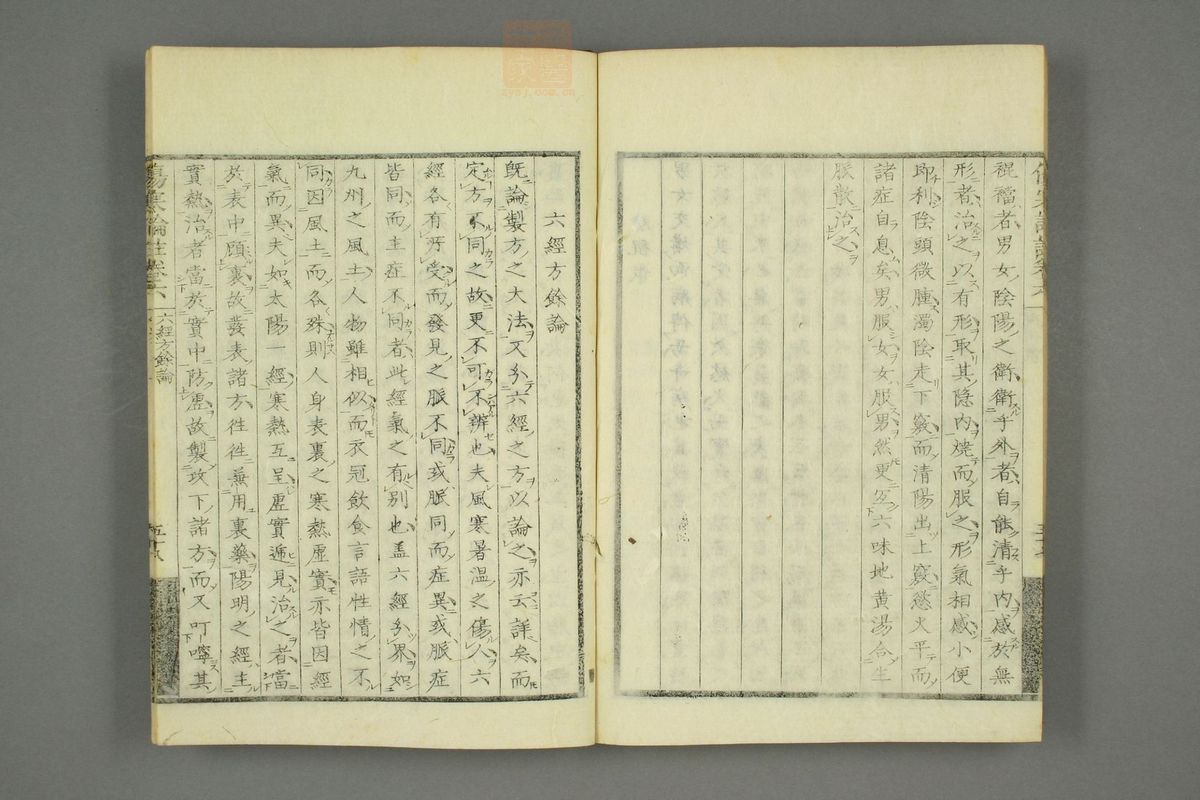 裩襠者男女陰陽之衛衛乎外者自能清乎內感於無
形者治之以有形取其隱內燒而服之形氣相感小便
即利陰頭微腫濁陰走下竅而清陽出上竅慾火平而
諸症自息矣男服女女服男然更宜六味地黃湯合生
脈散治之
六經方餘論
既論製方之大法又分六經之方以論之亦云詳矣而
定方不同之故更不可不辨也夫風寒暑溫之傷人六
經各有所受而發見之脈不同或脈同而症異或脈症
皆同而主症不同者此經氣之有別也盖六經分界如
九州之風土人物雖相似而衣冠飲食言語性情之不
同因風土而各殊則人身表裏之寒熱虛實亦皆因經
氣而異夫如太陽一經寒熱互呈虛實遞見治之者當
於表中顧裏故發表諸方徃徃兼用裏藥陽明之經主
實熱治者當於實中防虛故製攻下諸方而又叮嚀其
傷寒論註卷六
六經方餘論